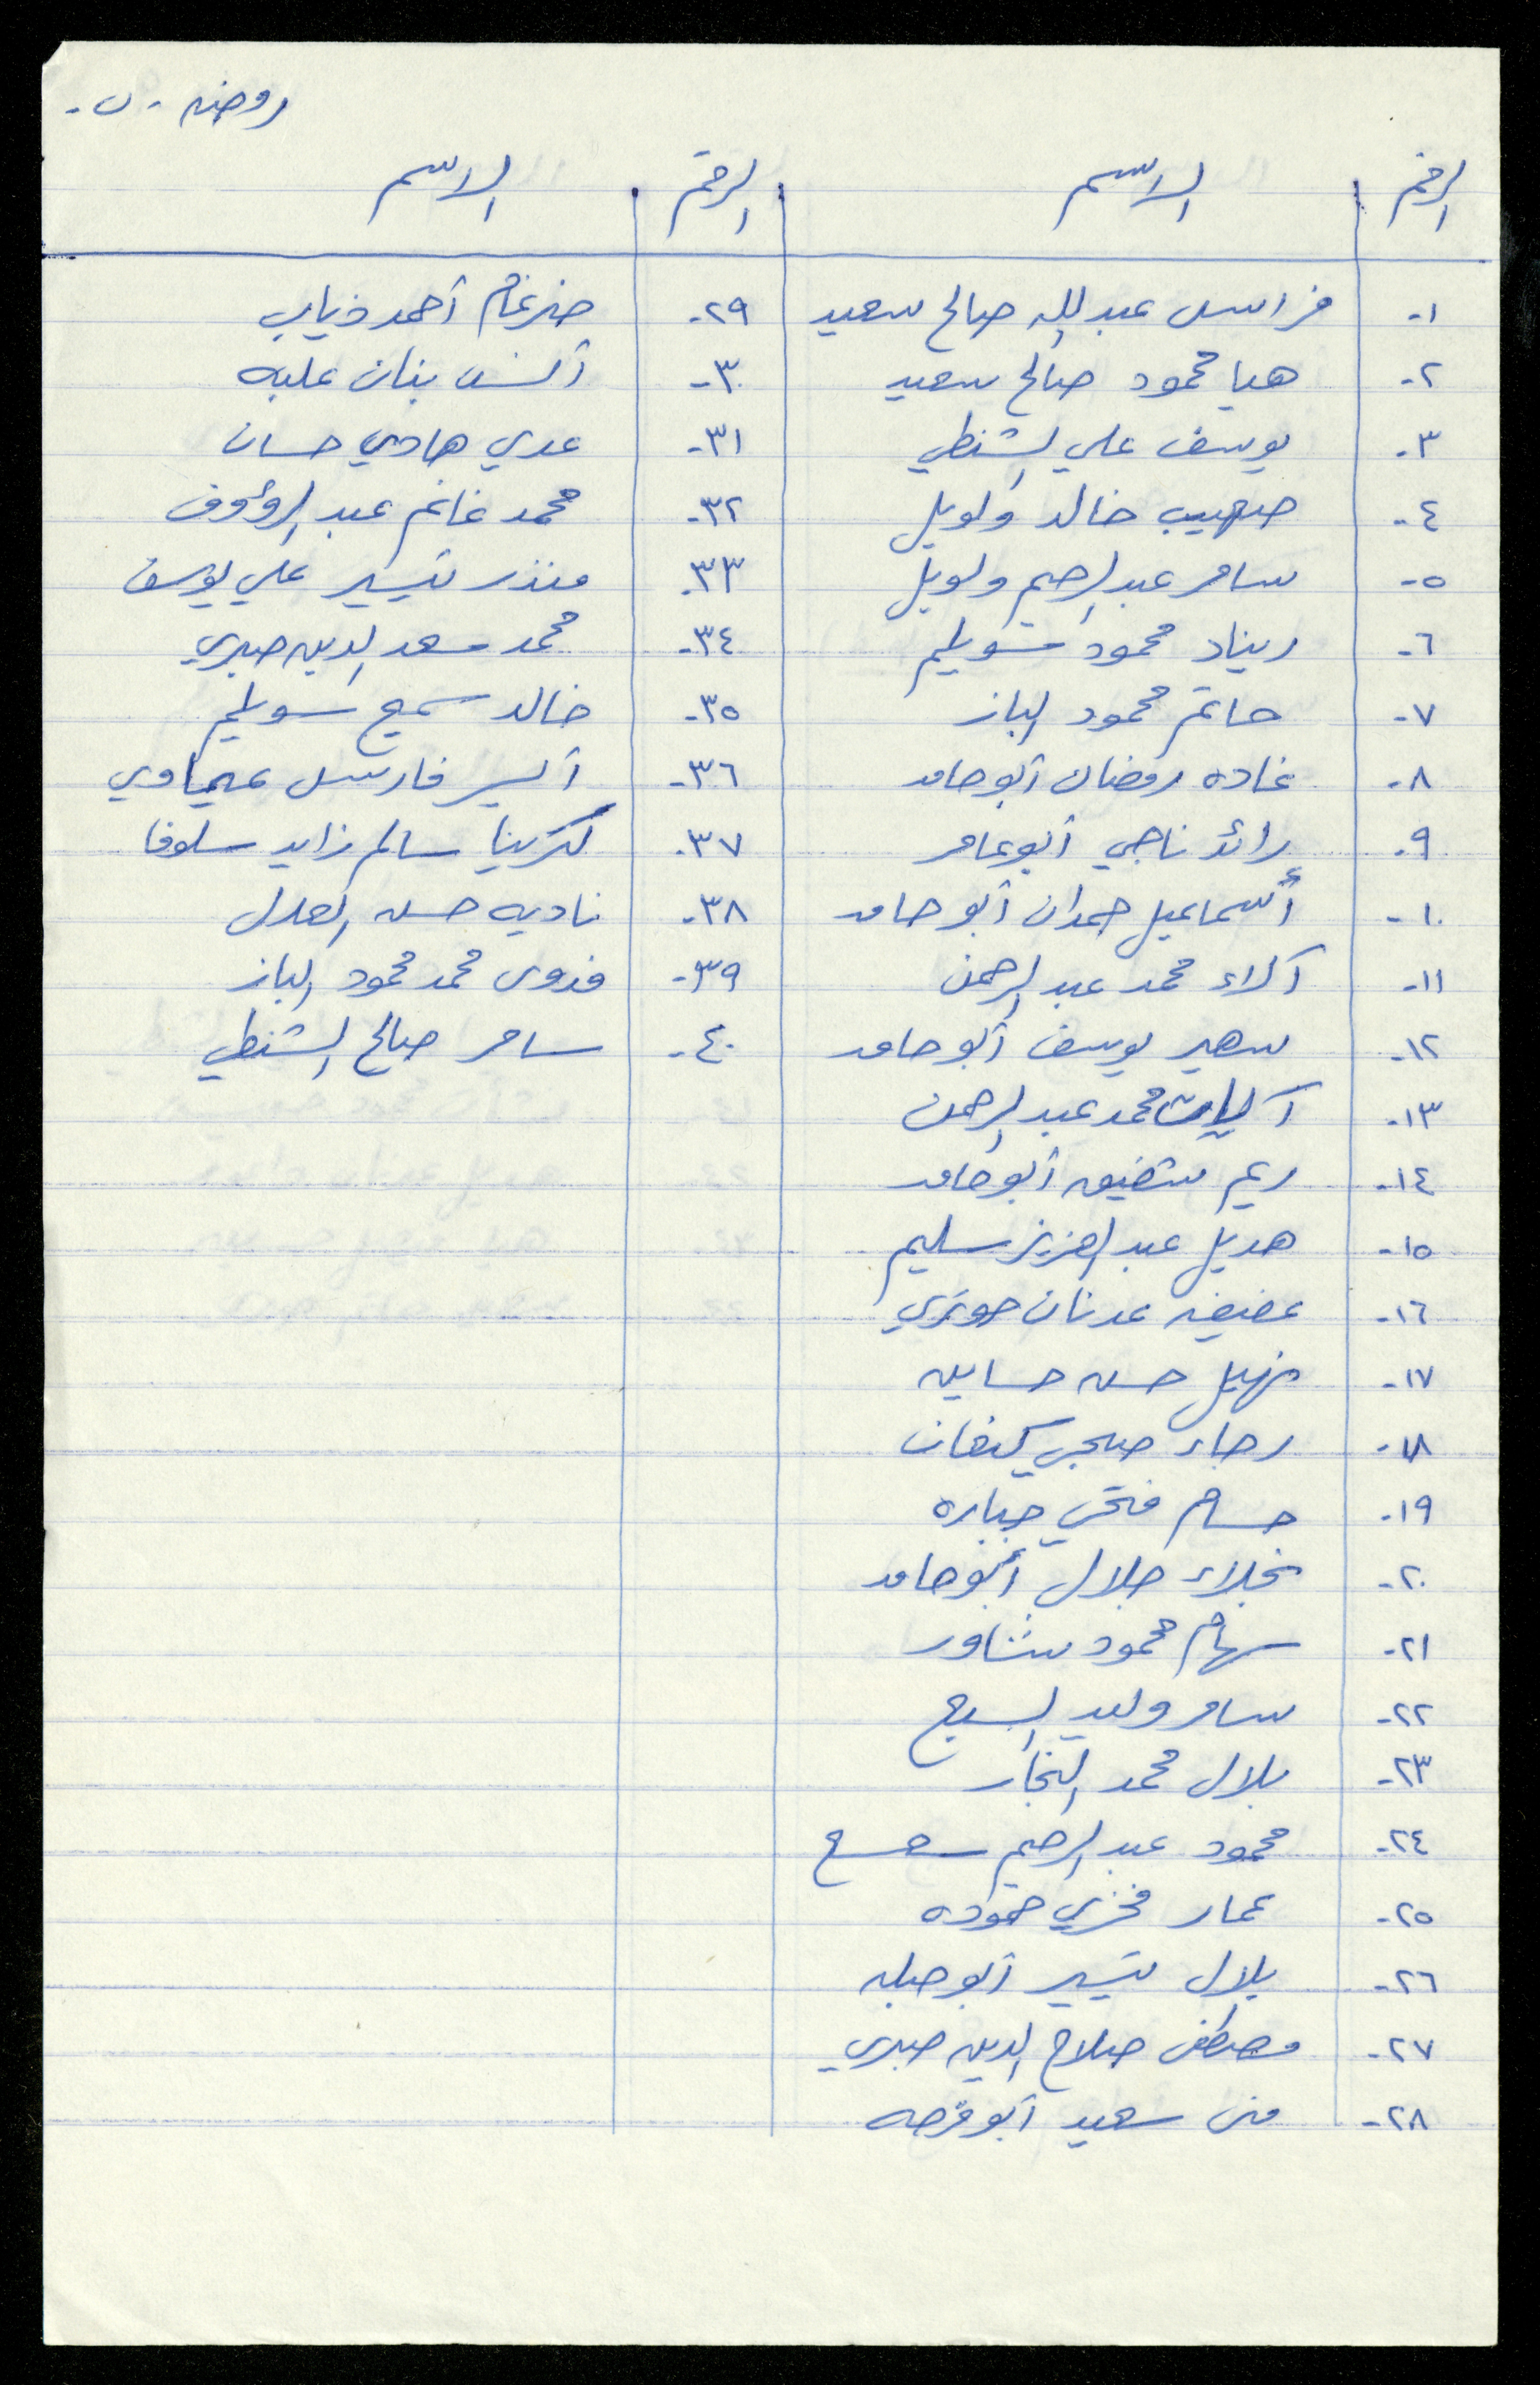 روضه - ن -
الرقم الاسم الرقم الاسم
١- فراس عبدالله صالح سعيد ٢٩- ضرغام أحمد ذياب
٢- هيا محمود صالح سعيد ٣٠- أنس بنان علبه
٣- يوسف علي الشنطي ٣١- عدي هادي حسان
٤- صهيب خالد ولويل ٣٢- محمد غانم عبد الرؤوف
٥- سامر عبد الرحيم ولويل ٣٣- منذر تيسير علي يوسف
٦- ريناد محمود سويلم ٣٤- محمد سعد الدين صبري
٧- حاتم محمود الباز ٣٥- خالد سميح سويلم
٨- غاده رمضان أبو حامد ٣٦- فارس
٩- رائد ناجي أبو عامر ٣٧- كترينا سالم زايد سلوفا
١٠- أسماعيل حمدان أبو حامد ٣٨- ناديه حسن العدل
١١- آلاء محمد عبد الرحمن ٣٩- فدوى محمد محمود الباز
١٢- سهير يوسف أبو حامد ٤٠- سامر صالح الشنطي
١٣- آيات محمد عبد الرحمن
١٤- ريم شفيق أبو حامد
١٥- هديل عبد العزيز سليم
١٦- عفيفه عدنان حوتري
١٧- نهيل حسن حساين
١٨- رجاء صبحي كنعان
١٩- حسام فتحي جباره
٢٠- نجلاء جلال أبو حامد
٢١- سهام محمود شاور
٢٢- سامر وليد السبع
٢٣- بلال محمد النجار
٢٤- محمود عبد الرحيم
٢٥- عمار فخري حموده
٢٦- بلال تيسير أبو حبله
٢٧- مصطفى صلاح الدين صبري
٢٨- منى سعيد أبو قرصه